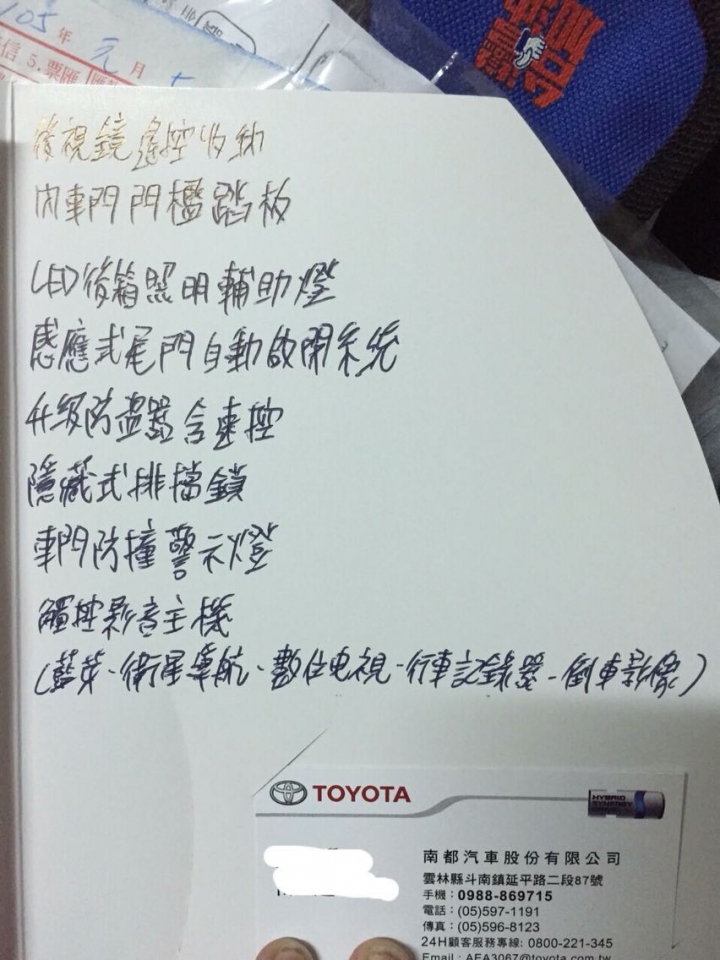 105年元月5
信 5.票匯
後視鏡遙控收動
內車門門檻踏板
LED後箱照明輔助燈
感應式尾門自動啟閉系統
升級防盜器含速控
隱藏式排擋鎖
車門防撞警示燈
觸控影音主機
(藍芽-衛星導航-數位电視-行車記錄器-倒車影像)
TOYOTA
HYBRID
SYNERGY
南都汽車股份有限公司
雲林縣斗南鎮延平路二段87號
手機：0988-869715
電話：(05)597-1191
傳真：(05)596-8123
24H顧客服務專線: 0800-221-345
Email：AEA3067@toyota.com.tw